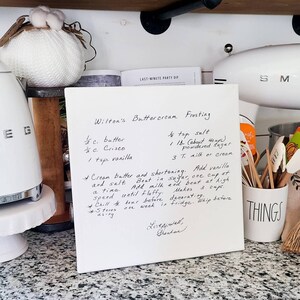 LAST-MINUTE PARTY
SM
EG
THINGS
Wilton's Buttercream Frosting
½ c butter
½ c Crisco
1 tsp vanilla
⅛ tsp salt
1 lb powdered sugar
3 T milk or cream
* Cream butter and shortening. Add vanilla
and salt. Beat in sugar, one cup at
a time. Add milk and beat at high
speed until fluffy. Makes 3 cups
* Chill 1 hour before decorating.
* Stores one week in fridge. Whip before
using